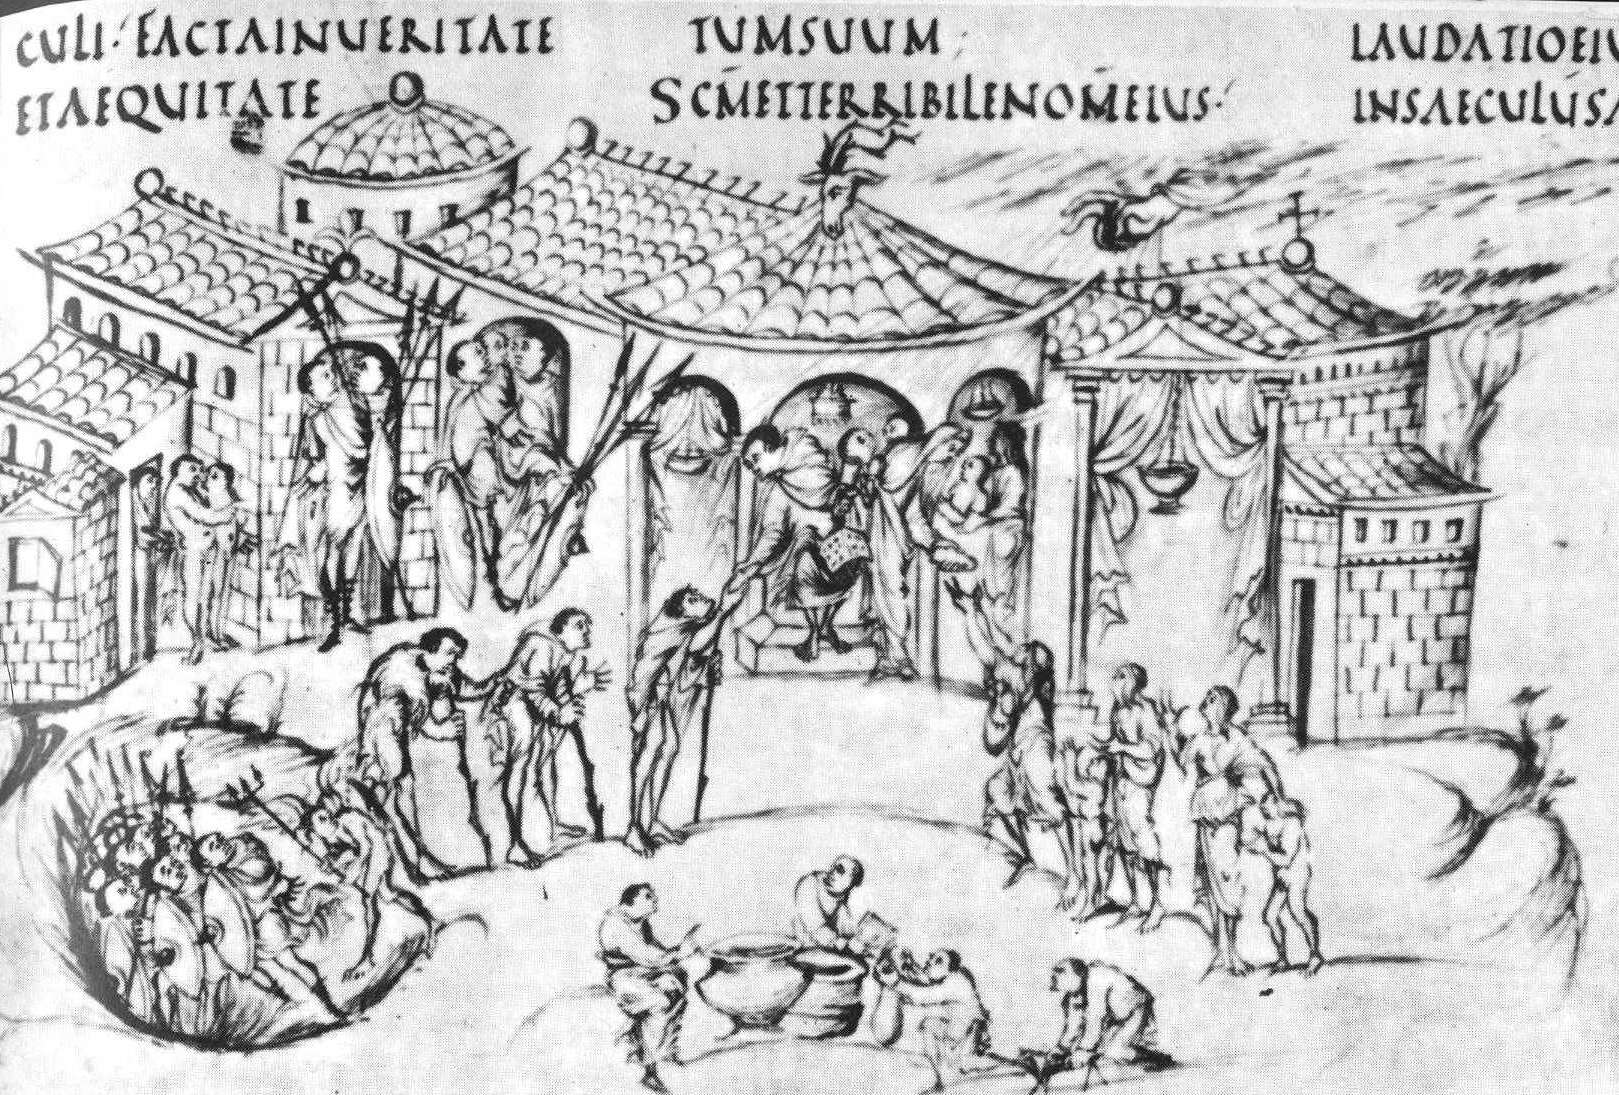 CULI· FACTAINUERITATE
ETAEQUITATE
TUMSUUM
SCMETTERRIBILENOMEIUS·
LAUDATIOEIU
INSAECULUSA